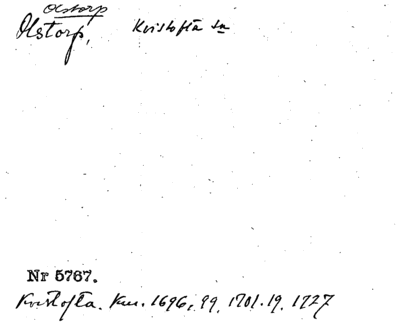 Olstorp
Olstorp, Kvistofta sn
Nr 5767.
Kvistofta. Km. 1696, 99, 1701. 19. 1727